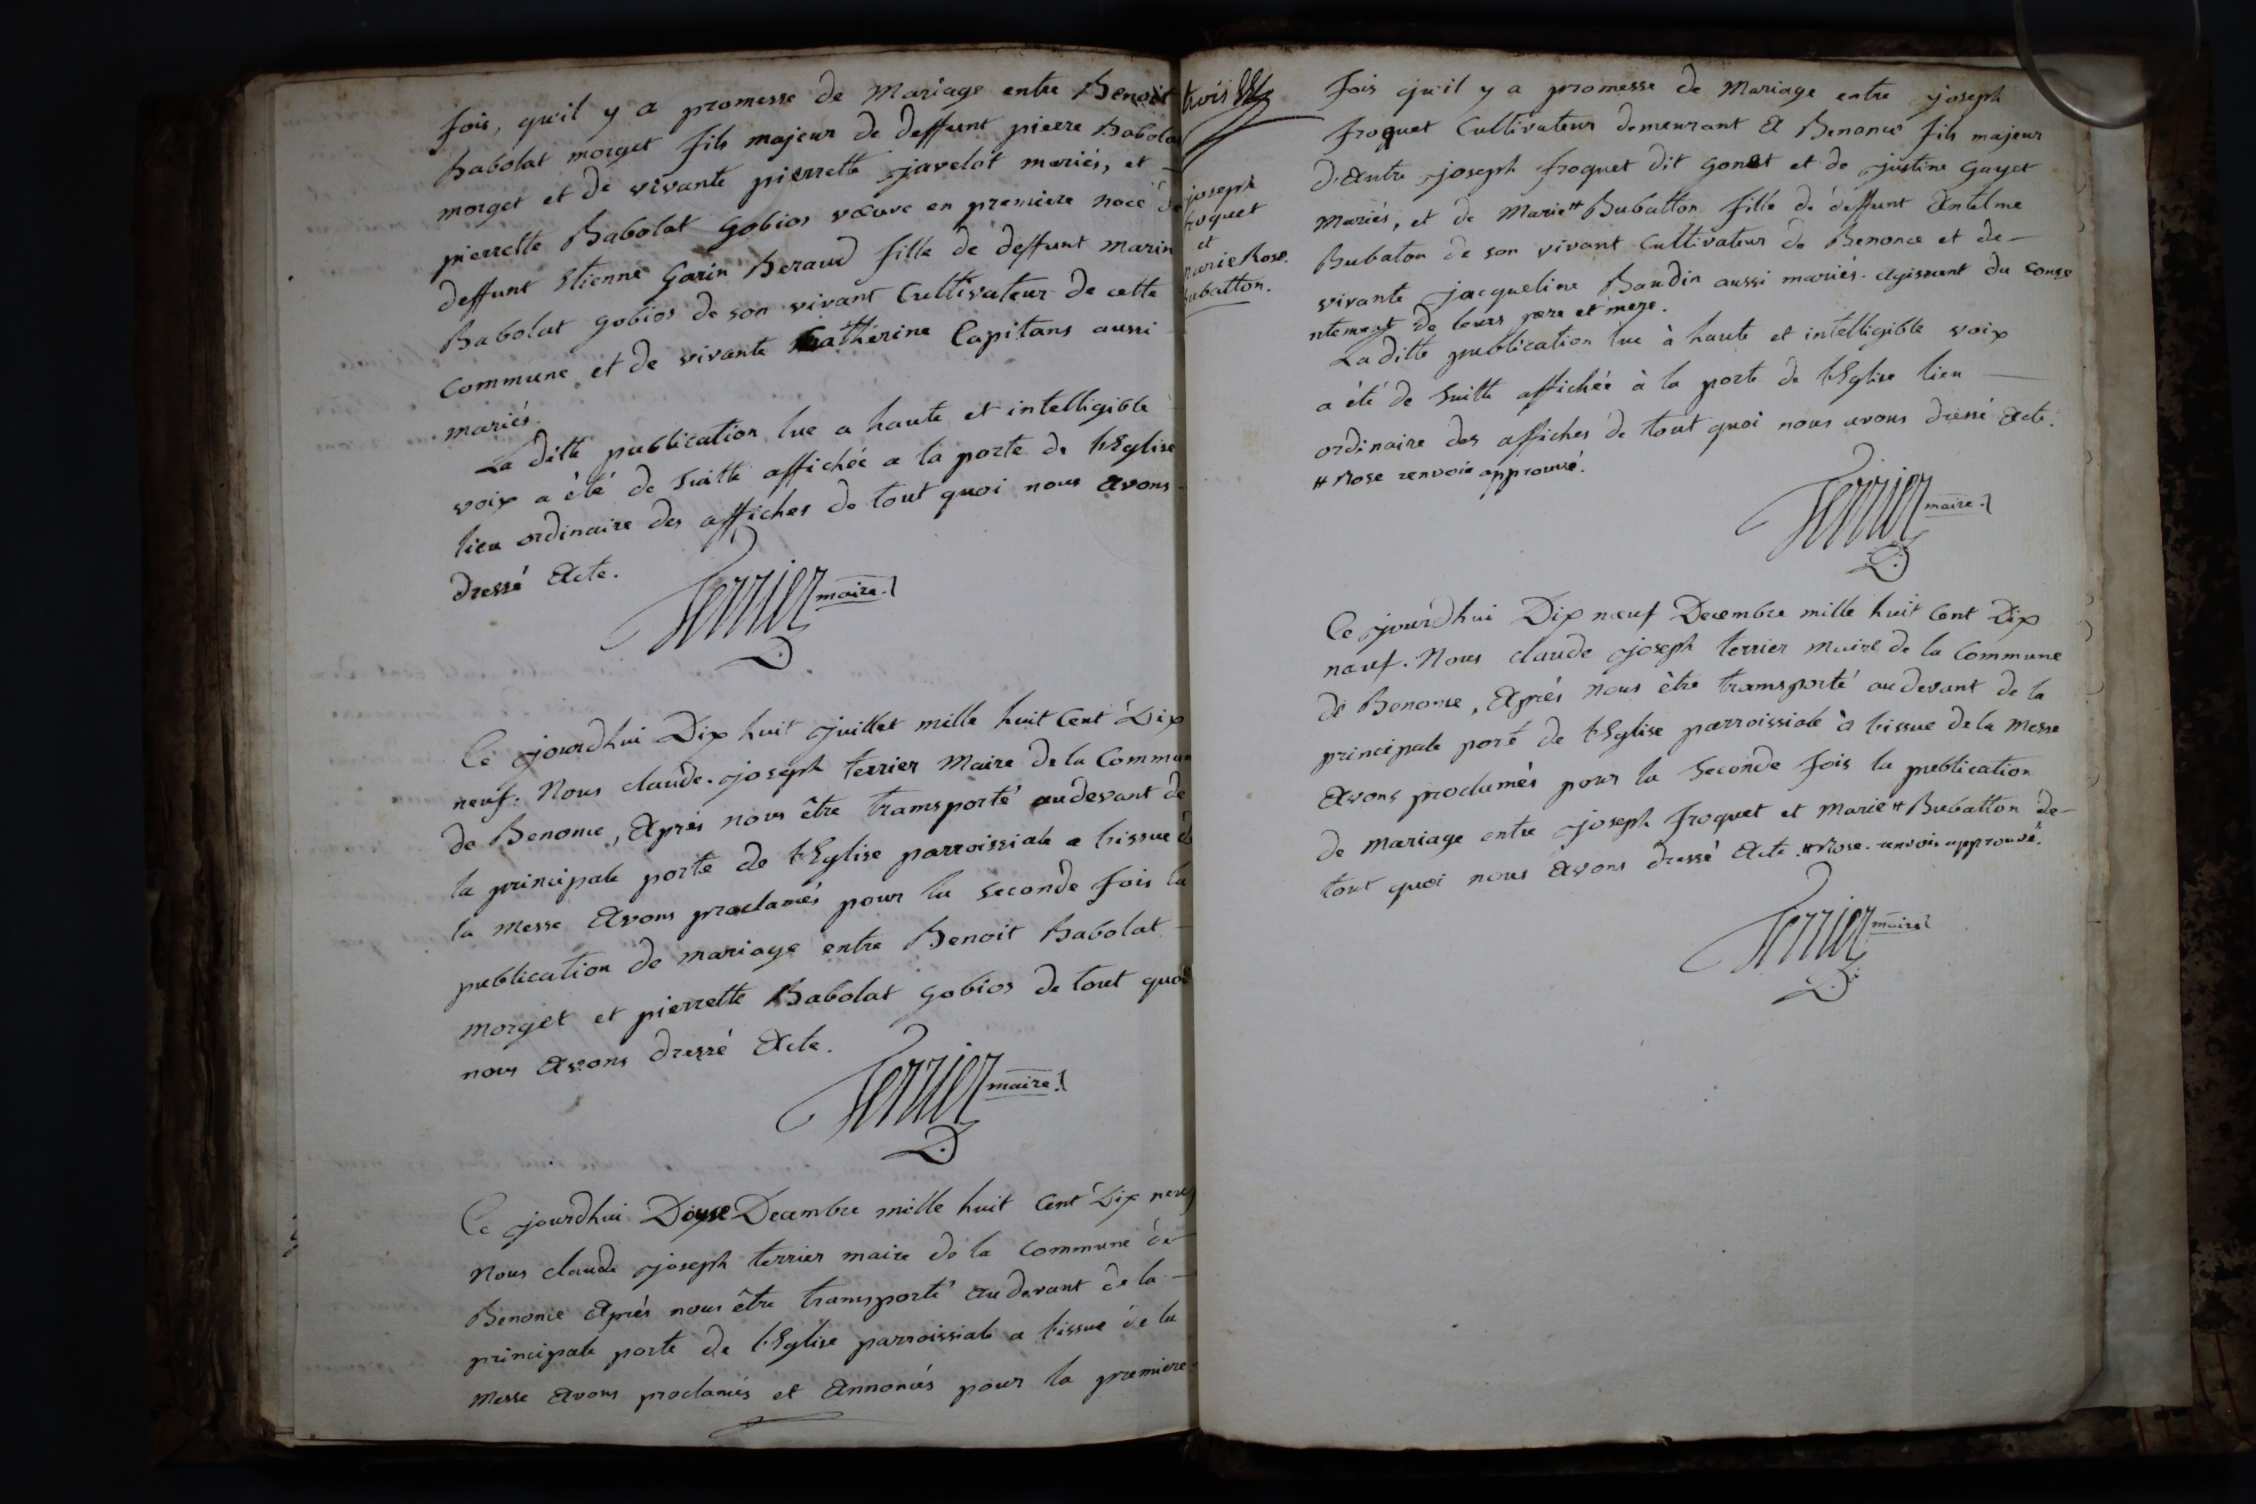 fois, qu'il y a promesse de Mariage entre Benoit
Babolat morget fils majeur de deffunt pierre Babolat
morget et de vivante pierrette javelot mariés, et
pierrette Babolat gobios vœuve en premiere noce de
deffunt Etienne Garin Beraud fille de deffunt marin
Babolat gobios de son vivant Cultivateur de cette
Commune et de vivante Catherine Capitans aussi
mariés.
La ditte publication lue a haute et intelligible
voix a été de suitte affichée a la porte de l'Eglise
lieu ordinaire des affiches de tout quoi nous avons
dressé Acte.
Terrier maire
Ce jourdhui Dix huit juillet mille huit Cent Dix
neuf. Nous claude joseph terrier Maire de la Commune
de Benonce, Après nous être transporté audevant de
la principale porte de l'Eglise parroissiale a l'issue de
la Messe Avons proclamés pour la seconde fois la
publication de mariage entre Benoit Babolat
morget et pierrette Babolat gobios de tout quoi
nous Avons dressé Acte.
Terrier maire
Ce jourdhui Douze Decembre mille huit Cent Dix neuf
Nous claude joseph terrier maire de la Commune de
Benonce Après nous être transporté Audevant de la
principale porte de l'Eglise parroissiale a l'issue de la
Messe Avons proclamés et Annoncés pour la premiere
trois
joseph
froquet
et
marie Rose
Bubatton.
fois qu'il y a promesse de Mariage entre joseph
froquet Cultivateur demeurant A Benonce fils majeur
d'Autre joseph froquet dit gonet et de justine Gayet
Mariés, et de Marie # Bubatton fille de déffunt Antelme
Bubaton de son vivant Cultivateur de Benonce et de
vivante jacqueline Baudin aussi mariés. Agissant du conse
ntement de leurs pere et mere.
La ditte publication lue à haute et intelligible voix
a été de suitte affichée à la porte de l'Eglise lieu
ordinaire des affiches de tout quoi nous avons dressé Acte.
# Rose renvoie approuvé.
Terrier maire
Ce jourdhui Dix neuf Decembre mille huit Cent Dix
neuf. Nous claude joseph terrier Maire de la Commune
de Benonce, Après nous être transporté audevant de la
principale porte de l'Eglise parroissiale à l'issue de la Messe
Avons proclamés pour la seconde fois la publication
de mariage entre joseph froquet et Marie # Bubatton de
tout quoi nous Avons dressé Acte. # Rose. renvoie approuvé.
Terrier maire